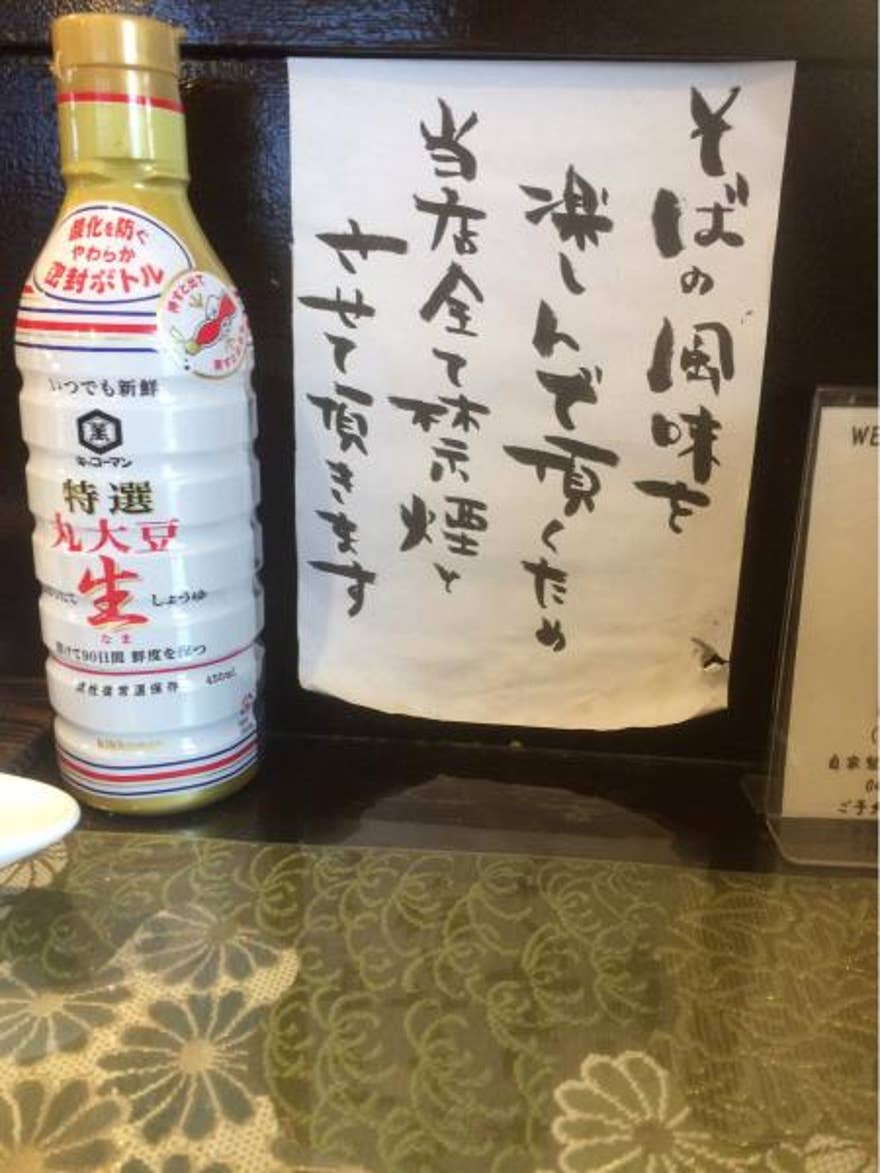 そばの風味を
楽しんで頂くため
当店全て禁煙と
させて頂きます
酸化を防ぐ
やわらか
密封ボトル
押すと出て
いつでも新鮮
萬
キッコーマン
特選
丸大豆
生
しょうゆ
なま
90日間 鮮度を保つ
常温保存
450ml
WE
自家製
ご予